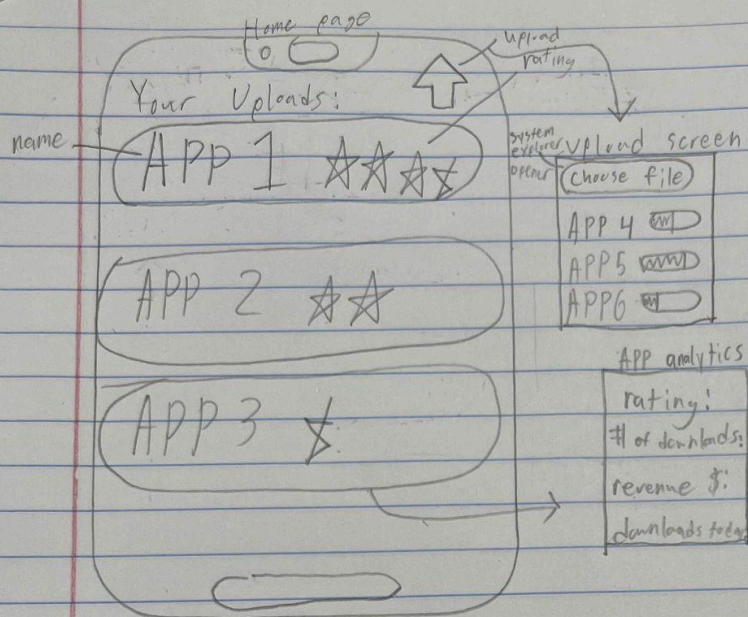 Home page
upload
rating
Your Uploads:
name
APP 1
system
explorer
opener
upload screen
choose file
APP 4
APP5
APP6
APP 2
APP analytics
rating:
# of downloads:
revenue $:
downloads today
APP 3